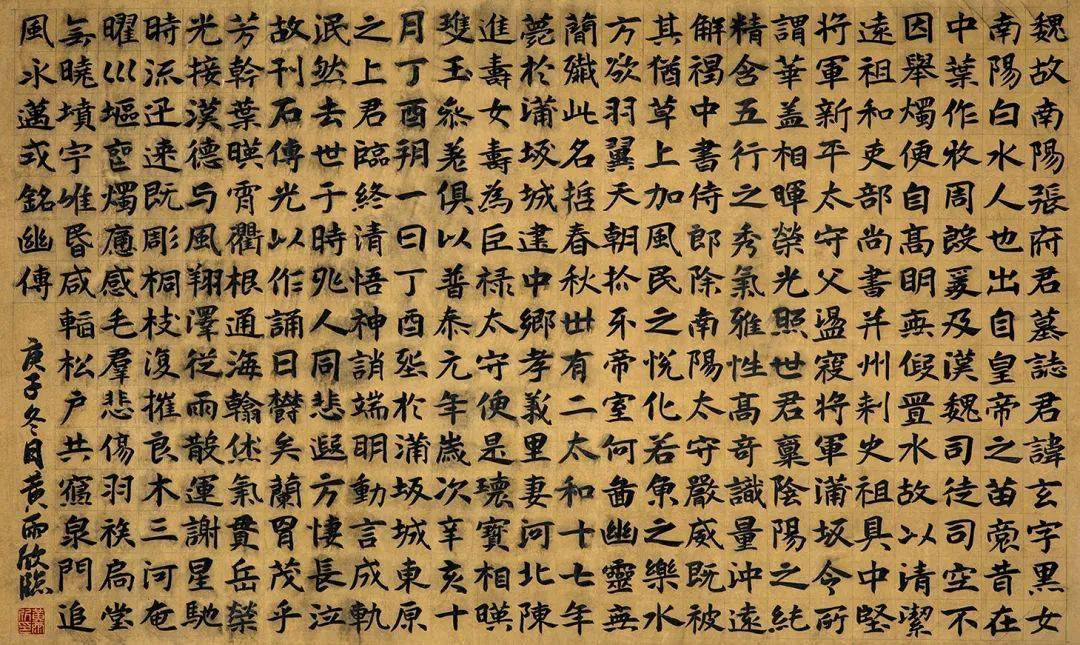 魏故南陽張府君墓誌君諱玄字黑女
南陽白水人也出自皇帝之苗裔昔在
中葉作牧周殷爰及漢魏司徒司空不
因舉燭便自高明無假置水故以清潔
遠祖和吏部尚書并州刺史祖具中堅
將軍新平太守父盪寇將軍蒲坂令所
謂華盖相暉榮光照世君稟陰陽之純
精含五行之秀氣雅性高奇識量沖遠
解褐中書侍郎除南陽太守嚴威既被
其猶草上加風民之悅化若魚之樂水
方欲羽翼天朝抓牙帝室何啚幽靈無
簡殲此名哲春秋卅有二太和十七年
薨於蒲坂城建中鄉孝義里妻河北陳
進壽女壽為巨祿太守便是瓌寶相暎
雙玉參差俱以普泰元年歲次辛亥十
月丁酉朔一日丁酉葬於蒲坂城東原
之上君臨終清悟神誚端明動言成軌
泯然去世于時兆人同悲遐方悽長泣
故刊石傳光以作誦曰欝矣蘭胄茂乎
芳幹葉暎霄衢根通海翰休氣貫岳榮
光接漢德与風翔澤從雨散運謝星馳
時流迅速既彫桐枝復摧良木三河奄
曜川塸燭痛感毛羣悲傷羽族扃堂
無曉墳宇唯昏咸韜松戶共寢泉門追
風永邁式銘幽傳
庚子冬月黃雨欣臨